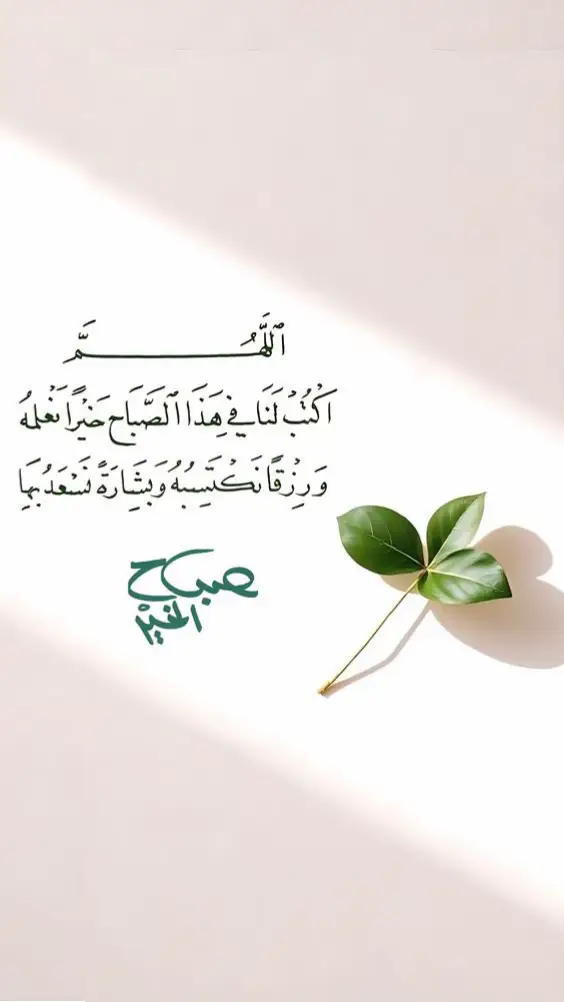 ٱللَّهُمَّ
اَكْتُبْ لَنَا فِي هَذَا ٱلصَّبَاحِ خَيْرًا نَعْلَمُهُ
وَرِزْقًا نَكْتَسِبُهُ وَبِشَارَةً نَسْعَدُ بِهَا
صباح
الخير